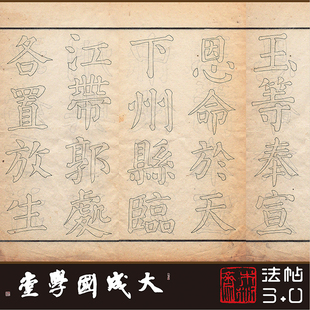 王等奉宣
恩命於天
下州縣臨
江帶郭處
各置放生
大成國學堂
法帖
3.0